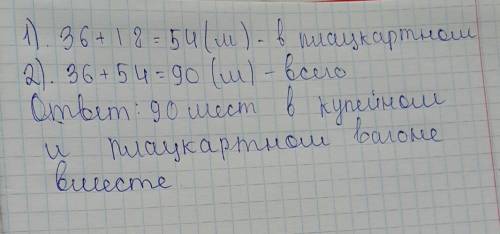 1). 36+18=54(м) - в плацкартном
2). 36+54=90 (м) - всего
Ответ: 90 мест в купейном
и плацкартном вагоне
вместе